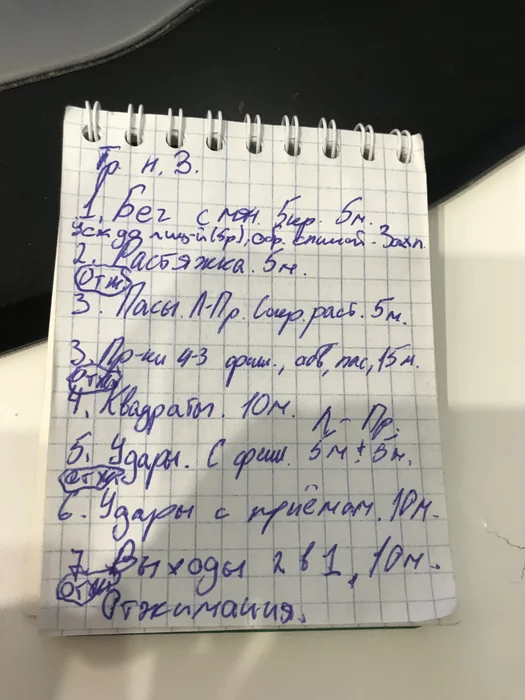 Тр. н. 3.
1. Бег с мяч. 5кр. 5м.
Уск. до лиц-й (5р), обр. спиной - 3ахл.
2. Растяжка. 5м.
Отж.
3. Пасы. Л-Пр. Сокр. раст. 5м.
3. Пр-ки 4-3 фиш., обв, пас, 15м.
Отж.
4. Квадраты. 10м.
Л - Пр.
5. Удары. С фиш. 5м + 5м.
Отж.
6. Удары с приёмом. 10м.
7. Выходы 2 в 1, 10м.
Отж
Отжимация.